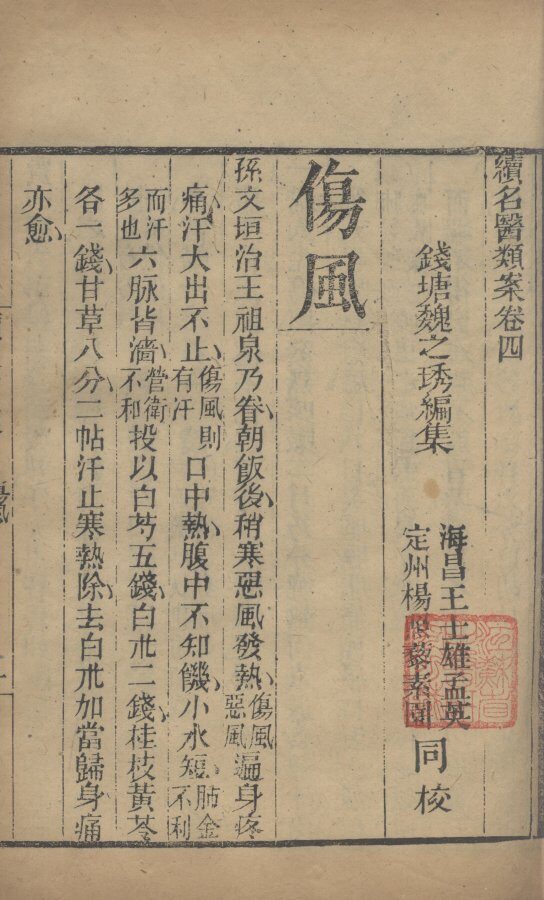 續名醫類案卷四
錢塘魏之琇編集
海昌王士雄孟英
定州楊照藜素園
同校
傷風
孫文垣治王祖泉乃眷朝飯後稍寒惡風發熱傷風惡風遍身疼
痛汗大出不止傷風則有汗口中熱腹中不知饑小水短肺金不利
而汗多也六脉皆濇營衛不和投以白芍五錢白朮二錢桂枝黃芩
各一錢甘草八分二帖汗止寒熱除去白朮加當歸身痛
亦愈